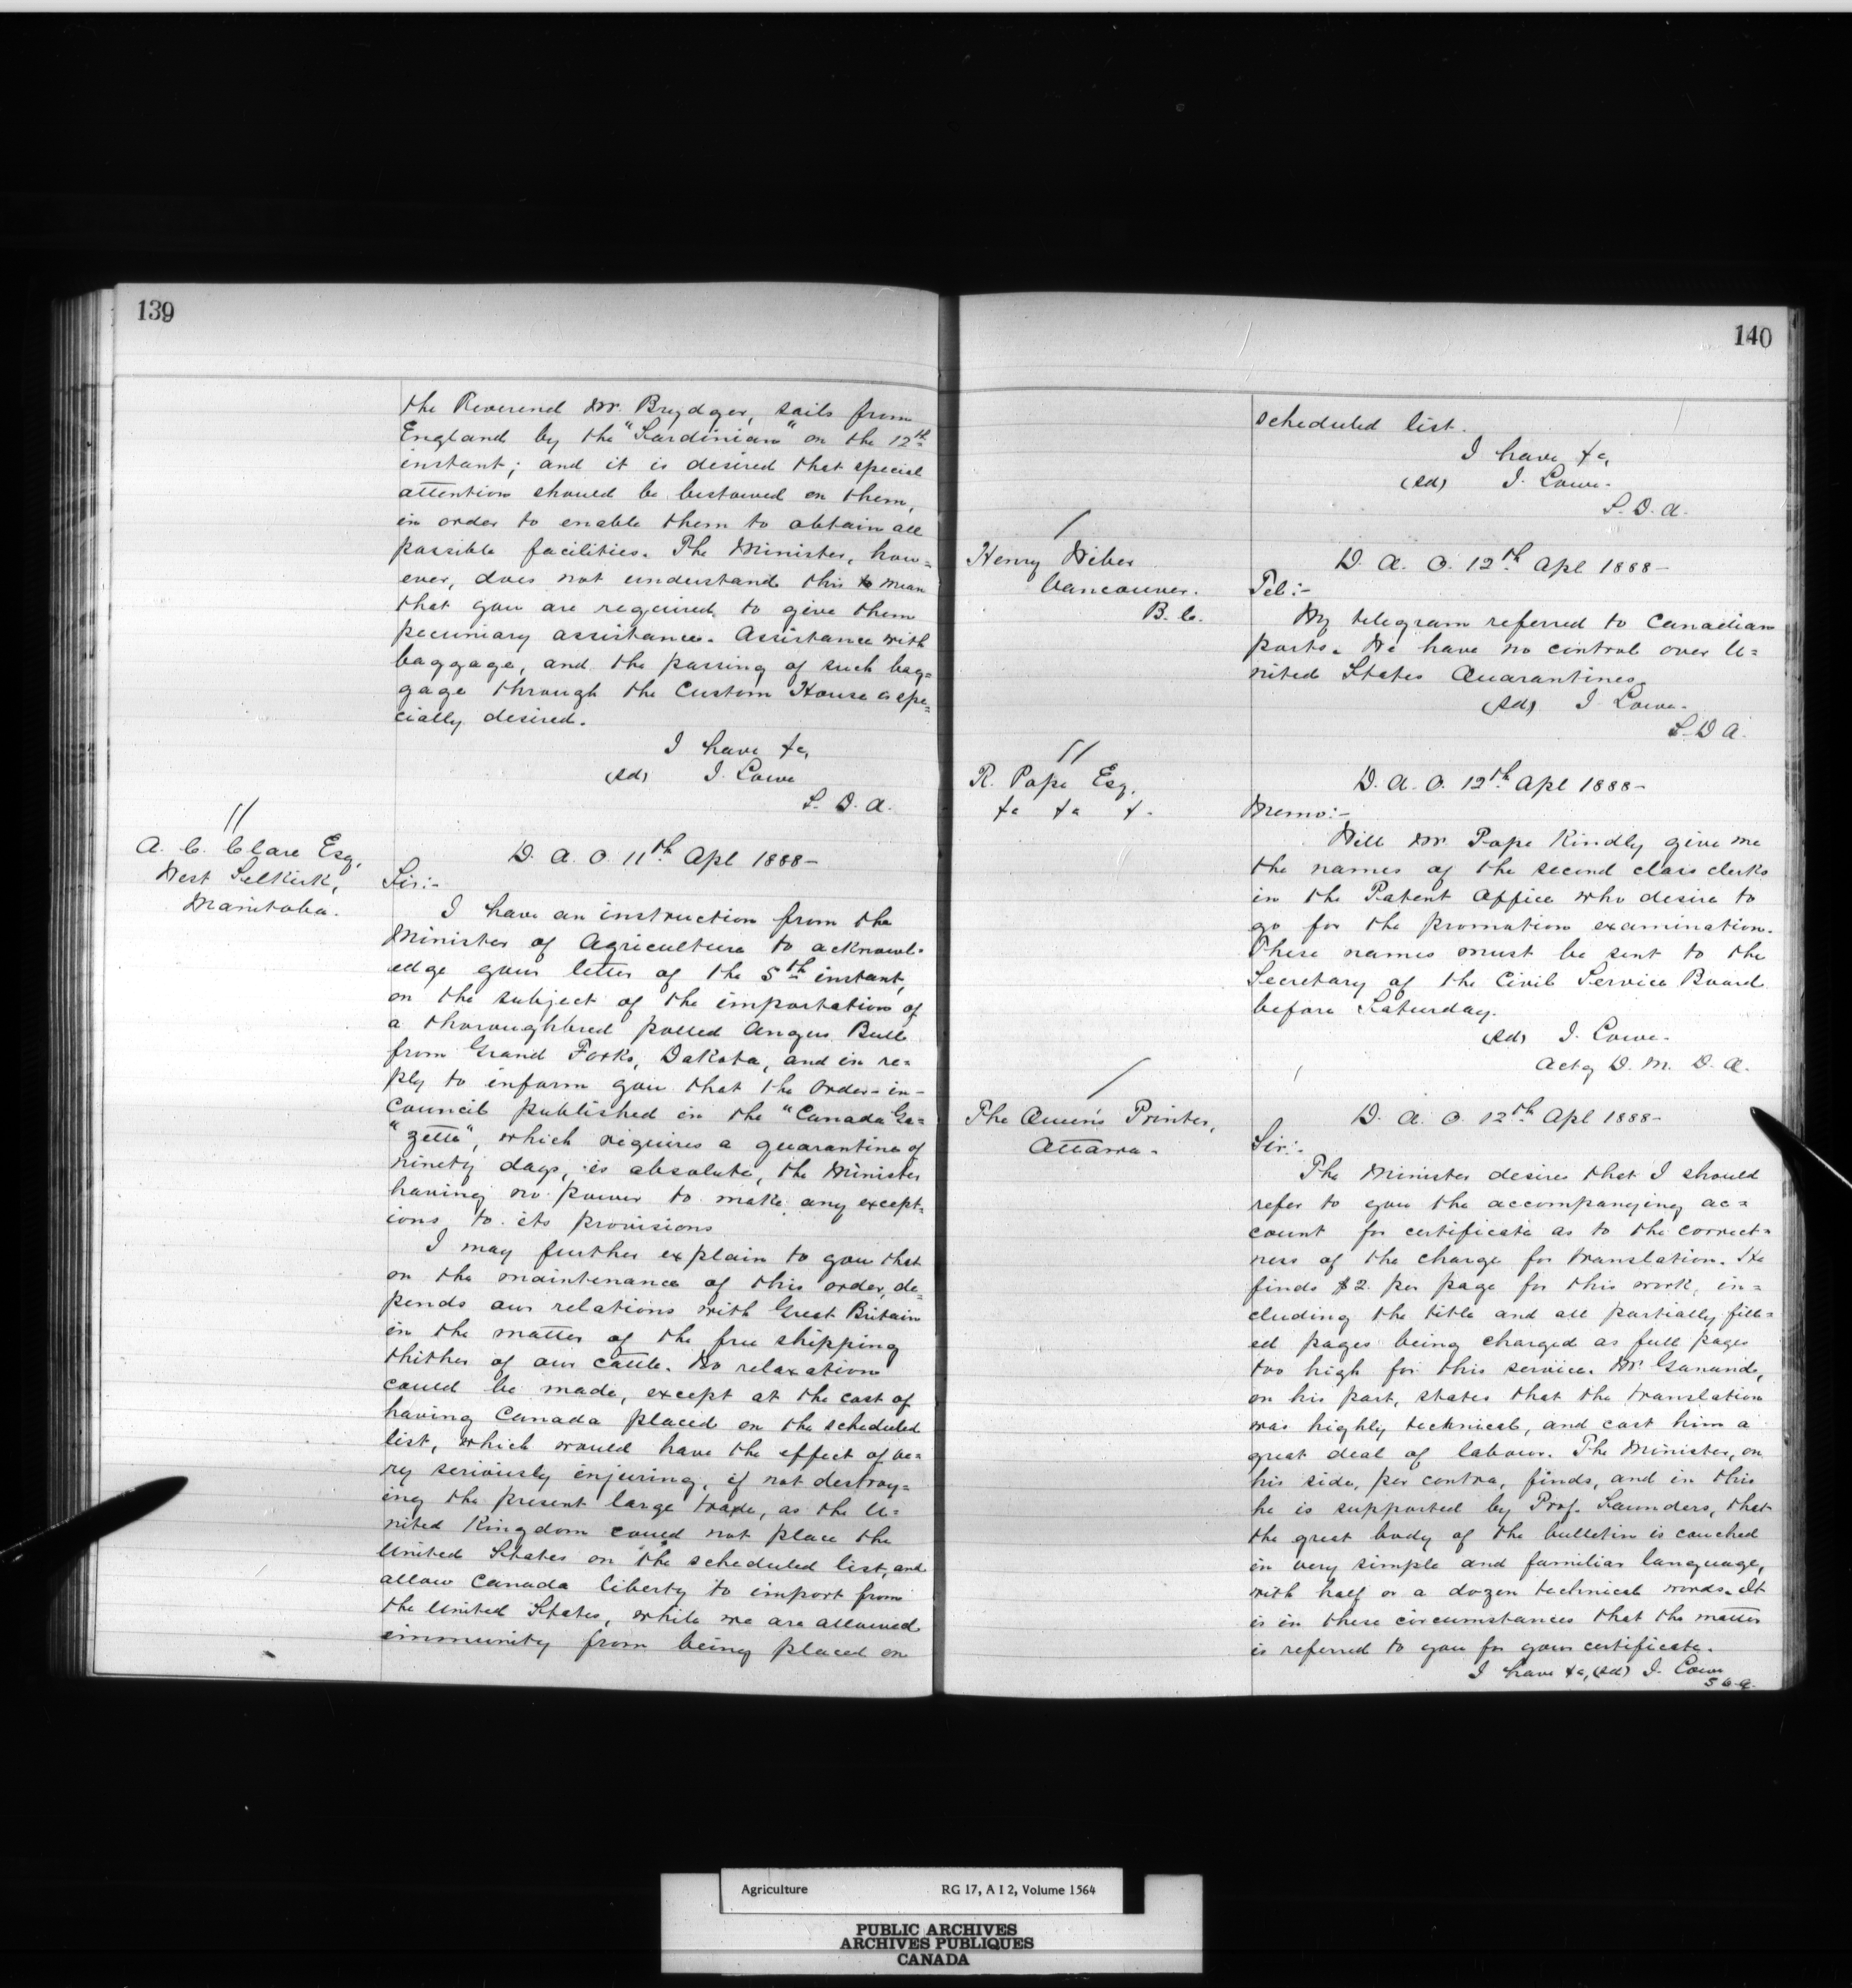 139
the Reverend Mr. Brydges, sails from
England by the "Sardinian" on the 12th
instant; and it is desired that special
attention should be bestowed on them,
in order to enable them to obtain all
possible facilities. The Minister, how=
ever, does not understand this to mean
that you are required to give them
pecuniary assistance. Assistance with
baggage, and the passing of such bag=
gage through the Custom House is spe=
cially desired.
I have &c,
(sd) J. Lowe
S. D. A.
//
A. C. Clare Esq,
West Selkirk,
Manitoba.
D. A. O. 11th Apl 1888-
Sir:-
I have an instruction from the
Minister of Agriculture to acknowl-
edge your letter of the 5th instant,
on the subject of the importation of
a thoroughbred polled Angus Bull
from Grand Forks, Dakota, and in re=
ply to inform you that the Order-in-
Council published in the "Canada Ga=
"zette", which requires a quarantine of
ninety days, is absolute, the Minister
having no power to make any except=
ions to its provisions
I may further explain to you that
on the maintenance of this order, de=
pends our relations with Great Britain
in the matter of the free shipping
thither of our cattle. No relaxation
could be made, except at the cost of
having Canada placed on the scheduled
list, which would have the effect of ve=
ry seriously injuring, if not destroy=
ing the present large trade, as the U=
nited Kingdom could not place the
United States on the scheduled list, and
allow Canada liberty to import from
the United States, while we are allowed
immunity from being placed on
140
scheduled list.
I have &c,
(sd) J. Lowe.
S. D. A.
/
Henry Weber
Vancouver.
B. C.
D. A. O. 12th Apl 1888-
Tel:-
My telegram referred to Canadian
ports. We have no control over U=
nited States Quarantines.
(sd) J Lowe.
S. D A.
//
R. Pope Esq,
&c &c &.
D. A. O. 12th Apl 1888-
Memo:-
Will Mr Pope Kindly give me
the names of the second class clerks
in the Patent Office who desire to
go for the promotion examination.
These names must be sent to the
Secretary of the Civil Service Board
before Saturday.
(sd) J. Lowe.
Actg D. M. D. A.
/
The Queen's Printer,
Ottawa.
D. A. O. 12th Apl 1888-
Sir:-
The Minister desires that I should
refer to you the accompanying ac=
count for certificate as to the correct=
ness of the charge for translation. He
finds $2. per page for this work, in=
cluding the title and all partially fill=
ed pages being charged as full pages
too high for this service. Mr. Ganand,
on his part, states that the translation
was highly technical, and cost him a
great deal of labour. The Minister, on
his side, per contra, finds, and in this
he is supported by Prof. Saunders, that
the great body of the bulletin is couched
in very simple and familiar language,
with half or a dozen technical words. It
is in these circumstances that the matter
is referred to you for your certificate.
I have &c, (sd) J. Lowe
S D A.
Agriculture RG 17, A I 2, Volume 1564
PUBLIC ARCHIVES
ARCHIVES PUBLIQUES
CANADA